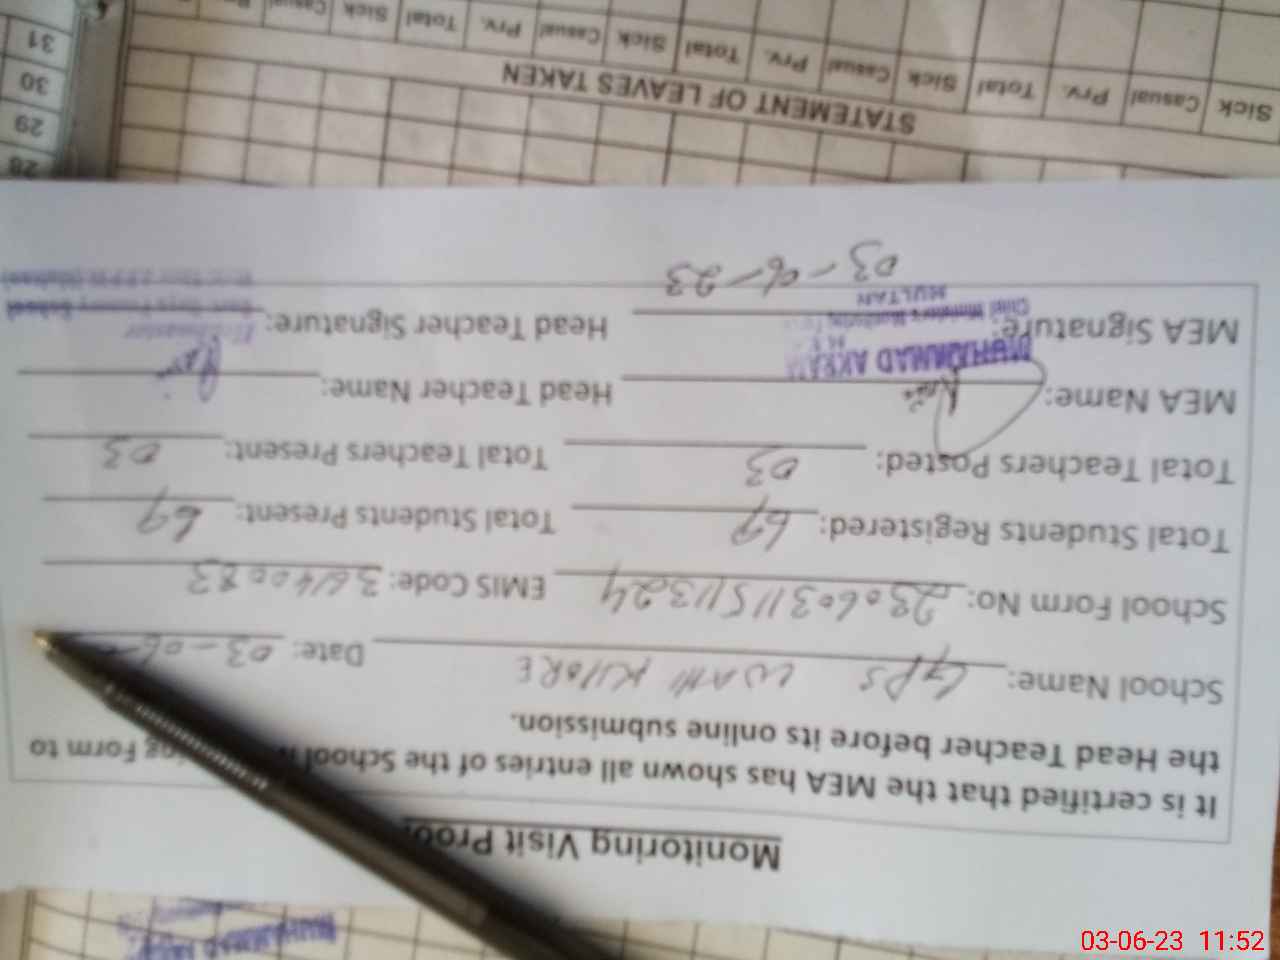 Monitoring Visit
It is certified that the MEA has shown all entries of the School Form to
the Head Teacher before its online submission.
School Name: GPS WAHI KHORE Date: 03-06-
School Form No: 230603115111324 EMIS Code: 36140083
Total Students Registered: 69 Total Students Present: 69
Total Teachers Posted: 03 Total Teachers Present: 03
MEA Name: Head Teacher Name:
MUHAMMAD AKRAM
MEA Signature: Head Teacher Signature:
MULTAN
03-06-23
STATEMENT OF LEAVES TAKEN
Sick Casual Prv. Total Sick Casual Prv. Total Sick Casual Prv. Total Sick Casual
28
29
30
31
MUHAMMAD
03-06-23 11:52